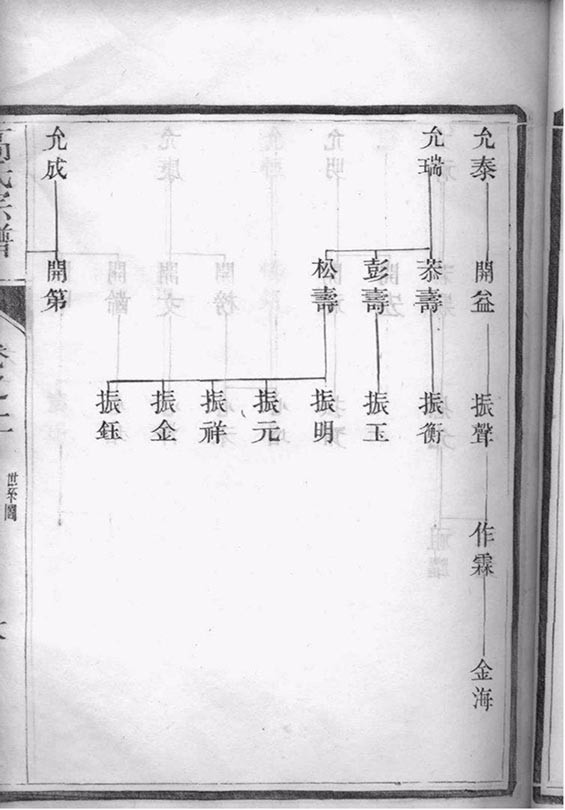 允泰
開益
振聲
作霖
金海
允瑞
恭壽
振衡
彭壽
振玉
松壽
振明
振元
振祥
振金
振鈺
允成
開第
世系圖